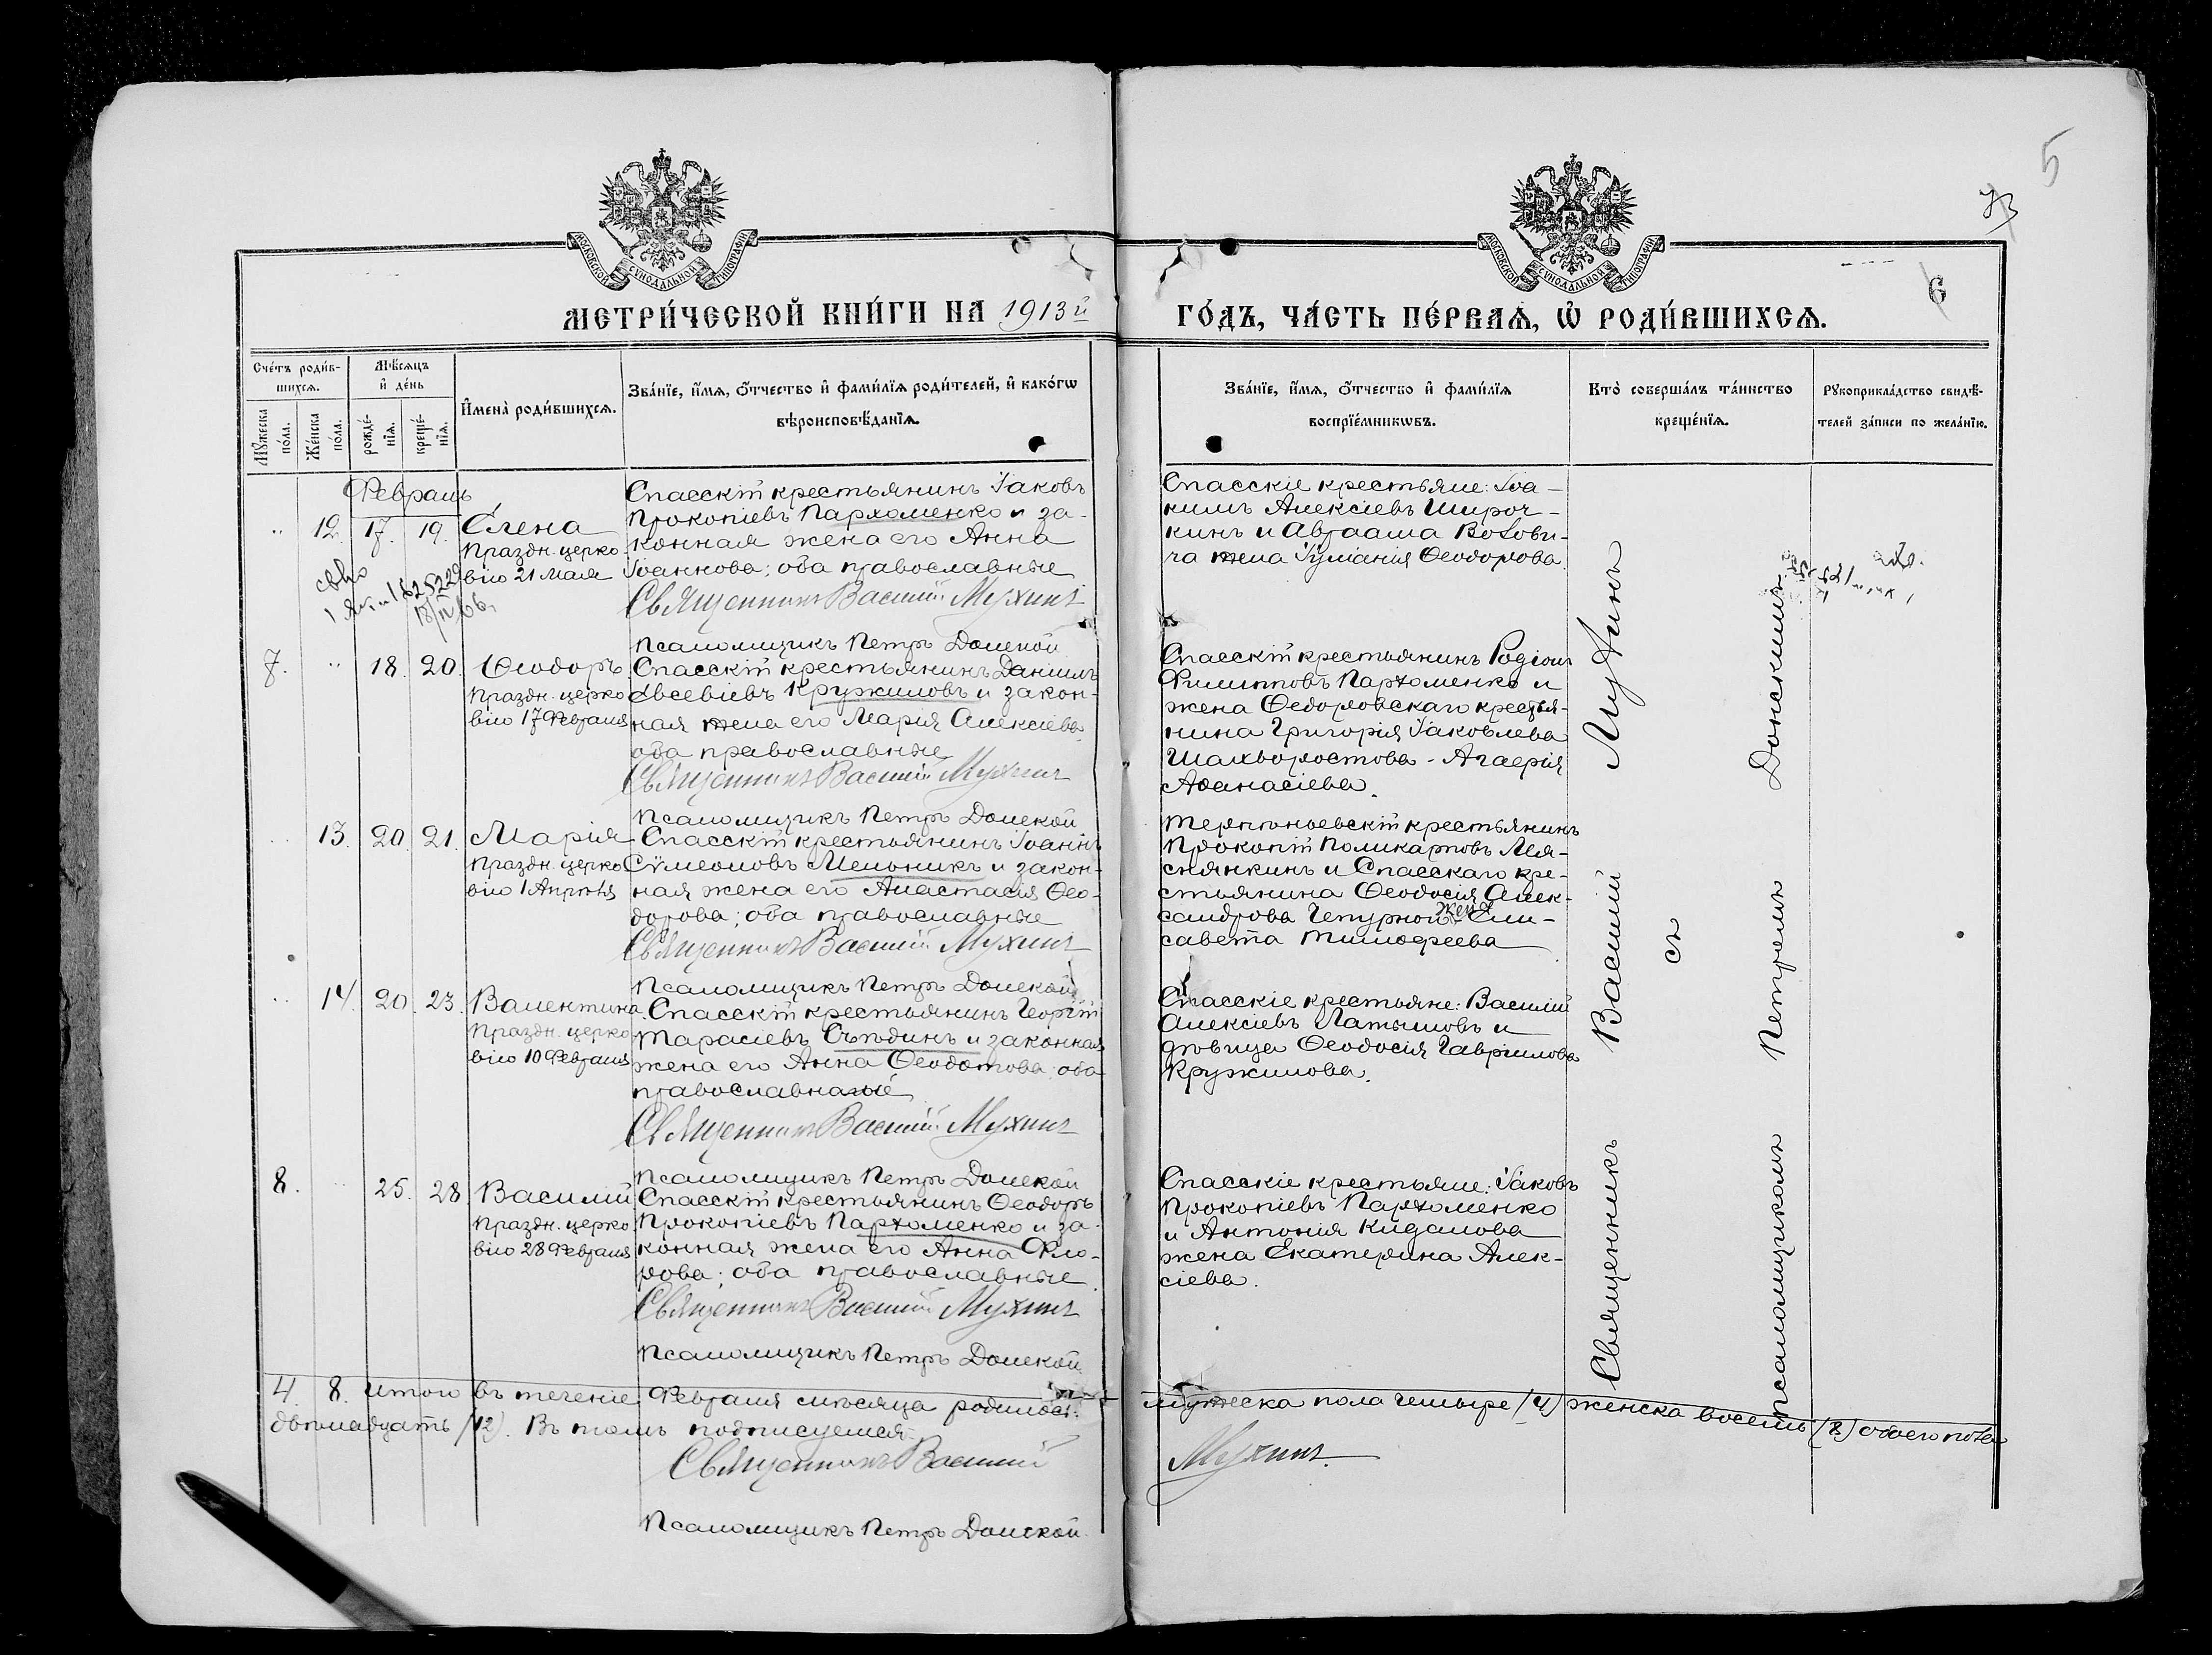 5
73
6
МОСКОВСКОЙ СУНОДАЛЬНОЙ ТИПОГРАФІИ
МОСКОВСКОЙ СУНОДАЛЬНОЙ ТИПОГРАФІИ
МЕТРИ́ЧЕСКОЙ КНИ́ГИ НА 1913й
ГО́ДЪ, ЧА́СТЬ ПЕ́РВАЯ, Ѡ РОДИ́ВШИХСЯ.
Сче́тъ роди́в-
шихся.
Мѣ́сяцъ
и҆ де́нь
Мꙋ́жеска
по́ла.
Же́нска
по́ла.
рожде́-
нїя.
креще́-
нїя.
И҆мена̀ роди́вшихся.
Зва́нїе, и҆́мя, ѻ҆́тчество и҆ фами́лїя роди́телей, и҆ како́гѡ
вѣроисповѣ́данїя.
Зва́нїе, и҆́мя, ѻ҆́тчество и҆ фами́лїя
воспрїе́мникѡвъ.
Кто̀ соверша́лъ та́инство
креще́нїя.
Рꙋкоприкла́дство свидѣ́-
телей за́писи по жела́нїю.
Февраль
12. 17. 19. Елена
Праздн. церко
вію 21 Мая
Спасскій крестьянинъ Іаковъ
Прокопіевъ Пархоменко и за-
конная жена его Анна
Іоаннова; оба православные
Священникъ Василій Мухинъ
Псаломщикъ Петръ Донской
Спасскіе крестьяне: Іоа-
кимъ Алексіевъ Широч-
кинъ и Авраама
жена Іуліанія Ѳеодорова.
18/IV 66
7. 18. 20. Ѳеодоръ
Праздн. церко
вію 17 Февраля
Спасскій крестьянинъ Даніилъ
Евсевіевъ Кружиловъ и закон-
ная жена его Марія Алексіева
оба православные
Священникъ Василій Мухинъ
Псаломщикъ Петръ Донской
Спасскій крестьянинъ Родіонъ
Филипповъ Пархоменко и
жена Ѳедоровскаго крестья-
нина Григорія Іаковлева
Шахворостова - Агафія
Аѳанасіева.
13. 20. 21. Марія
Праздн. церко
вію 1 Апрѣля
Спасскій крестьянинъ Іоаннъ
Сѵмеоновъ Мельникъ и закон-
ная жена его Анастасія Ѳео-
дорова; оба православные
Священникъ Василій Мухинъ
Псаломщикъ Петръ Донской
крестьянинъ
Прокопій Поликарповъ Мя-
снянкинъ и Спасскаго кре-
стьянина Ѳеодосія Алек-
сандрова Чепурной жена Ели-
савета Тимофеева
14. 20. 23. Валентина
Праздн. церко
вію 10 Февраля
Спасскій крестьянинъ Георгій
Тарасіевъ Съѣдинъ и законная
жена его Анна Ѳеодотова; оба
православные
Священникъ Василій Мухинъ
Псаломщикъ Петръ Донской
Спасскіе крестьяне: Василій
Алексіевъ Латышовъ и
дѣвица Ѳеодосія Гавріилова
Кружилова.
8. 25. 28 Василій
Праздн. церко
вію 28 Февраля
Спасскій крестьянинъ Ѳеодоръ
Прокопіевъ Пархоменко и за-
конная жена его Анна Фло-
рова; оба православные
Священникъ Василій Мухинъ
Псаломщикъ Петръ Донской
Спасскіе крестьяне: Іаковъ
Прокопіевъ Пархоменко
и Антонія Кидалова
жена Екатерина Алек-
сіева.
Священникъ Василій Мухинъ
съ
псаломщикомъ Петромъ Донскимъ
4. 8. Итого въ теченіе Февраля мѣсяца родилось: мужеска пола четыре (4) женска восемь (8) обоего пола
двѣнадцать (12). Въ томъ подписуемся:
Священникъ Василій Мухинъ.
Псаломщикъ Петръ Донской.